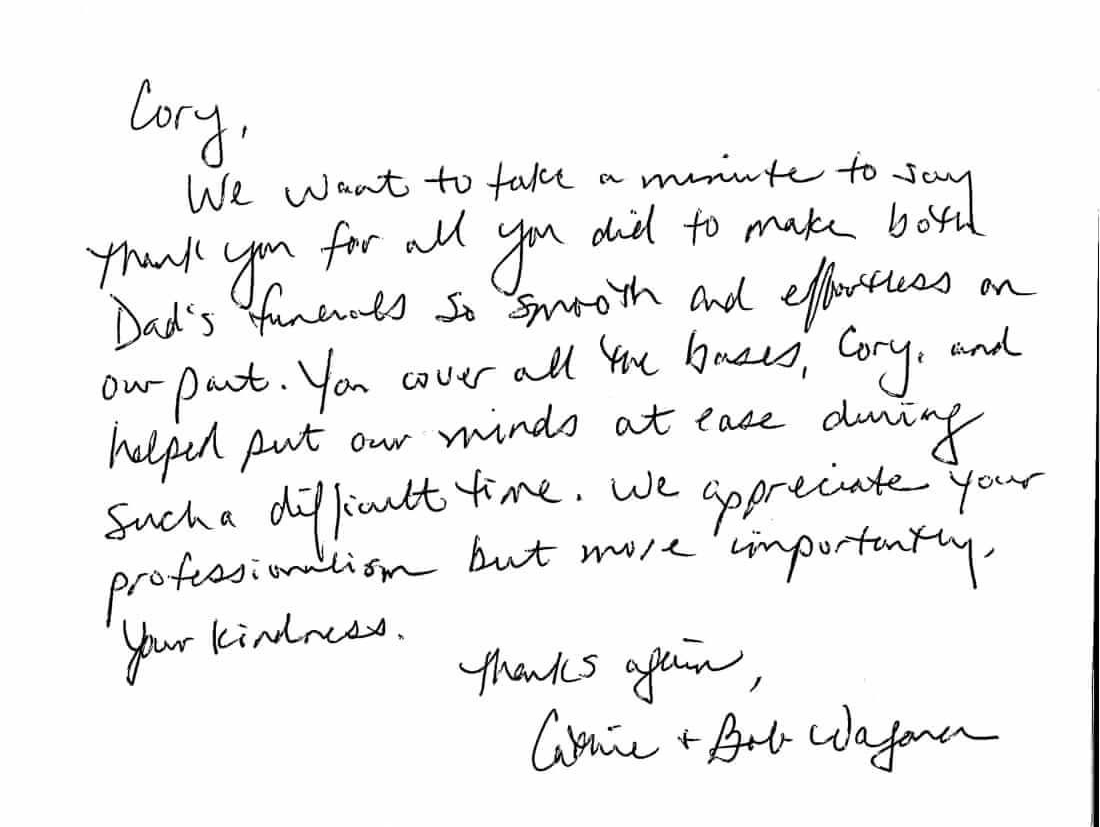 Cory,
We want to take a minute to say
thank you for all you did to make both
Dad's funerals so smooth and effortless on
our part. You cover all the bases, Cory, and
helped put our minds at ease during
such a difficult time. We appreciate your
professionalism but more importantly,
your kindness.
Thanks again,
+ Bob Wagoner